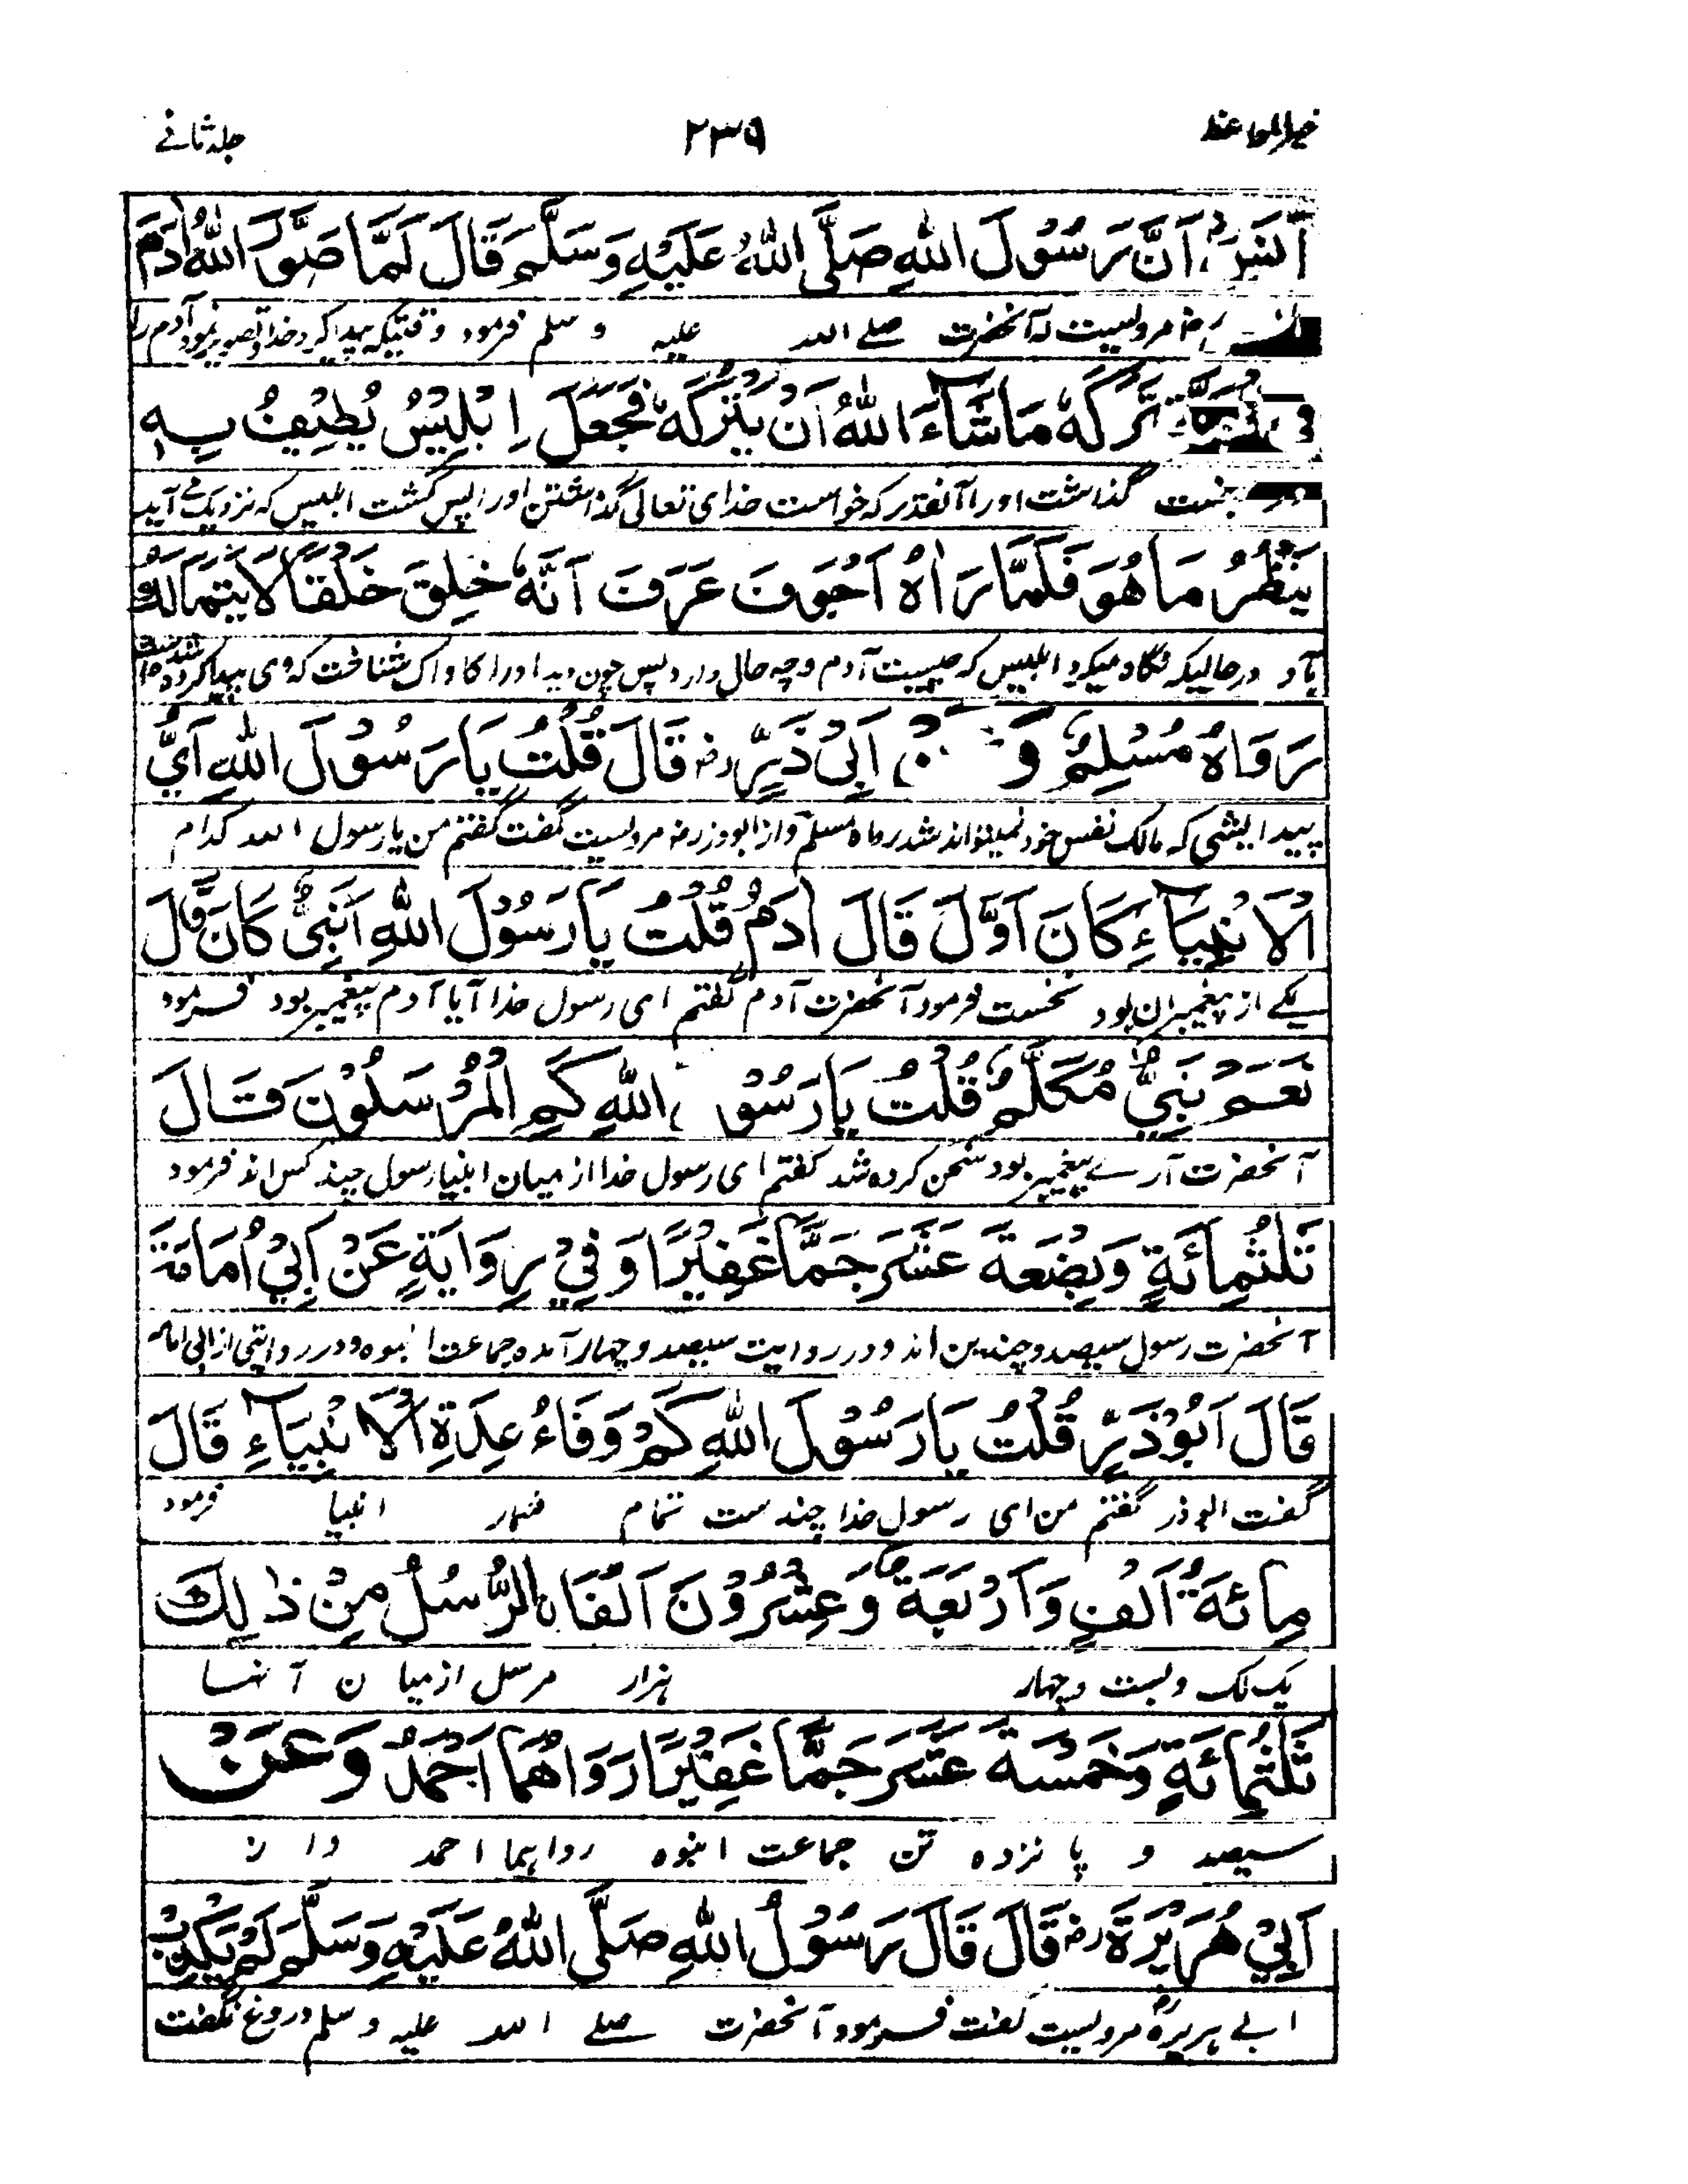 خیر المواعظ ۲۳۹ جلد ثانے
اَنَسٍ رض اَنَّ رَسُوْلَ اللهِ صَلَّى اللهُ عَلَيْهِ وَسَلَّمَ قَالَ لَمَّا صَوَّرَ اللهُ اٰدَمَ
رض مرویست که آنحضرت صلے الله علیه و سلم فرمود وقتیکه پیدا کرد خدا و تصویر نمود آدم را
فِى الْجَنَّةِ تَرَكَهٗ مَا شَآءَ اللهُ اَنْ يَّتْرُكَهٗ فَجَعَلَ اِبْلِيْسُ يُطِيْفُ بِهٖ
در جنت گذاشت او را آنقدر که خواست خدای تعالی گذاشتن او را پس گشت ابلیس که نزدیک مے آید
يَنْظُرُ مَا هُوَ فَلَمَّا رَاٰهُ اَجْوَفَ عَرَفَ اَنَّهٗ خُلِقَ خَلْقًا لَا يَتَمَالَكُ
بآدم در حالیکه نگاه میکرد ابلیس که چیست آدم و چه حال دارد پس چون دید او را کاواک شناخت که وی پیدا کرده شده است
رَوَاهُ مُسْلِمٌ وَعَنْ اَبِىْ ذَرٍّ رض قَالَ قُلْتُ يَا رَسُوْلَ اللهِ اَيُّ
پیدایشی که مالک نفس خود نمیتواند شد رواه مسلم و از ابوذر رض مرویست گفت گفتم من یا رسول الله کدام
الْاَنْبِيَآءِ كَانَ اَوَّلَ قَالَ اٰدَمُ قُلْتُ يَا رَسُوْلَ اللهِ اَنَبِىٌّ كَانَ قَالَ
یکے از پیغمبران بود نخست فرمود آنحضرت آدم گفتم ای رسول خدا آیا آدم پیغمبر بود فرمود
نَعَمْ نَبِىٌّ مُكَلَّمٌ قُلْتُ يَا رَسُوْلَ اللهِ كَمِ الْمُرْسَلُوْنَ قَالَ
آنحضرت آرے پیغمبر بود سخن کرده شد گفتم ای رسول خدا از میان انبیا رسول چند کس اند فرمود
ثَلٰثُمِائَةٍ وَبِضْعَةَ عَشَرَ جَمًّا غَفِيْرًا وَفِيْ رِوَايَةٍ عَنْ اَبِيْ اُمَامَةَ
آنحضرت رسول سیصد و چندین اند و در روایت سیصد و چهار آمده جماعت انبوه و در روایتی از ابی امامه
قَالَ اَبُوْ ذَرٍّ قُلْتُ يَا رَسُوْلَ اللهِ كَمْ وَفَاءُ عِدَةِ الْاَنْبِيَآءِ قَالَ
گفت ابوذر گفتم من ای رسول خدا چند ست تمام شمار انبیا فرمود
مِائَةُ اَلْفٍ وَاَرْبَعَةٌ وَعِشْرُوْنَ اَلْفًا الرُّسُلُ مِنْ ذٰلِكَ
یک لک و بست و چهار هزار مرسل از میان آنها
ثَلٰثُمِائَةٍ وَخَمْسَةَ عَشَرَ جَمًّا غَفِيْرًا رَوَاهُمَا اَحْمَدُ وَعَنْ
سیصد و پانزده تن جماعت انبوه رواهما احمد و از
اَبِيْ هُرَيْرَةَ رض قَالَ قَالَ رَسُوْلُ اللهِ صَلَّى اللهُ عَلَيْهِ وَسَلَّمَ لَمْ يَكْذِبْ
ابے ہریرہ مرویست گفت فرمود آنحضرت صلے الله علیه و سلم دروغ نگفت